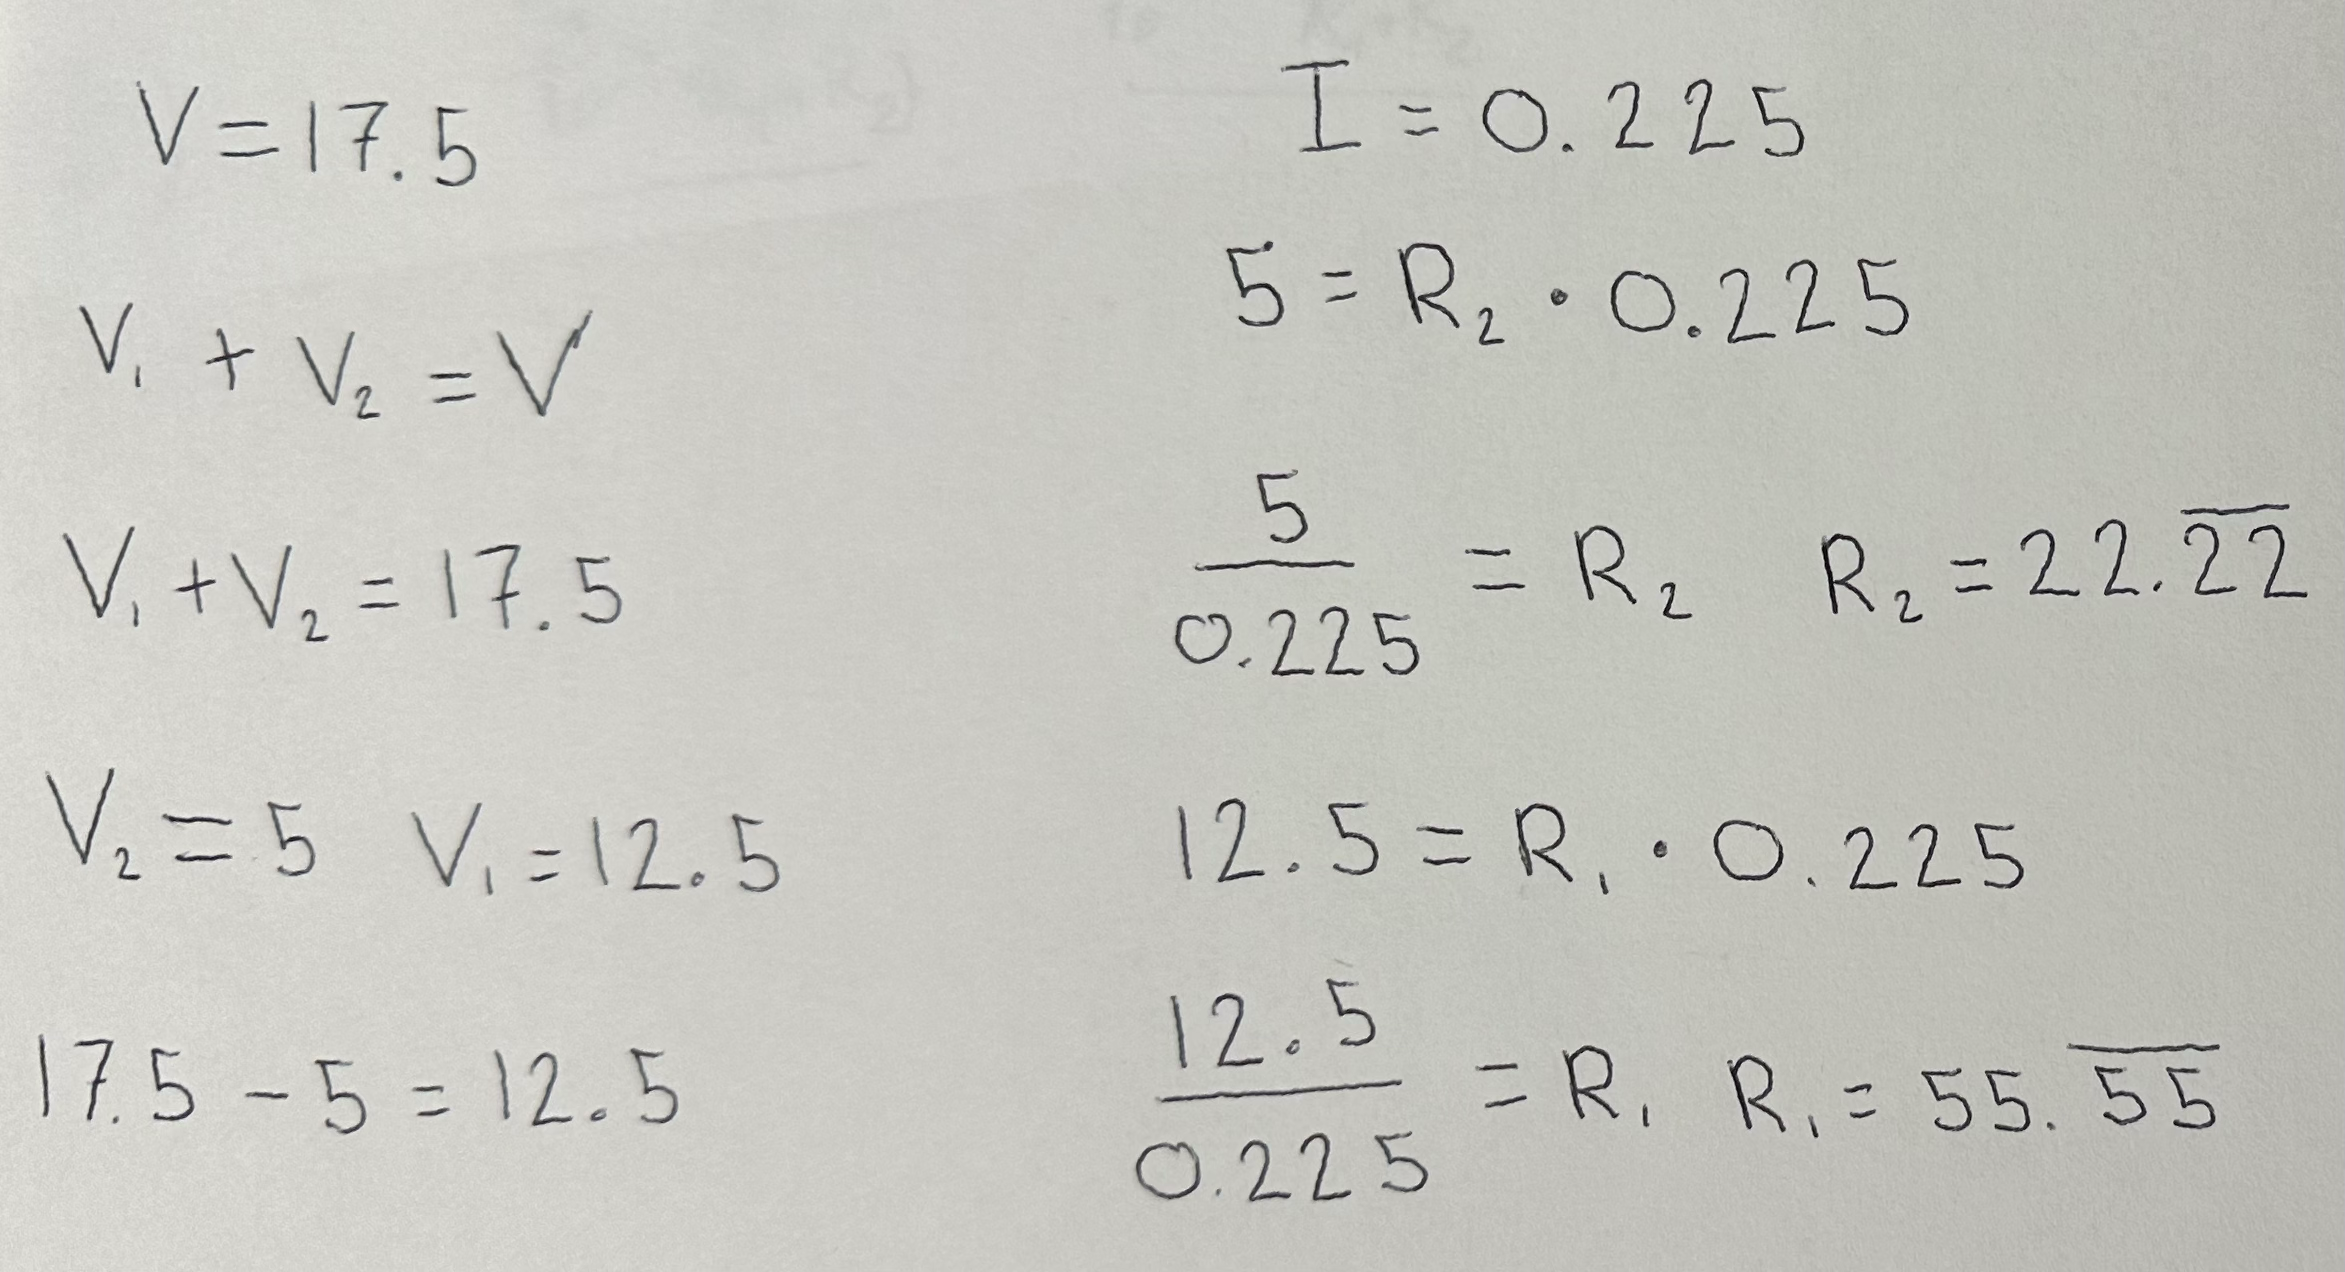 V = 17.5
V₁ + V₂ = V
V₁ + V₂ = 17.5
V₂ = 5 V₁ = 12.5
17.5 - 5 = 12.5
I = 0.225
5 = R₂ · 0.225
5/0.225 = R₂ R₂ = 22.2̅2̅
12.5 = R₁ · 0.225
12.5/0.225 = R₁ R₁ = 55.5̅5̅